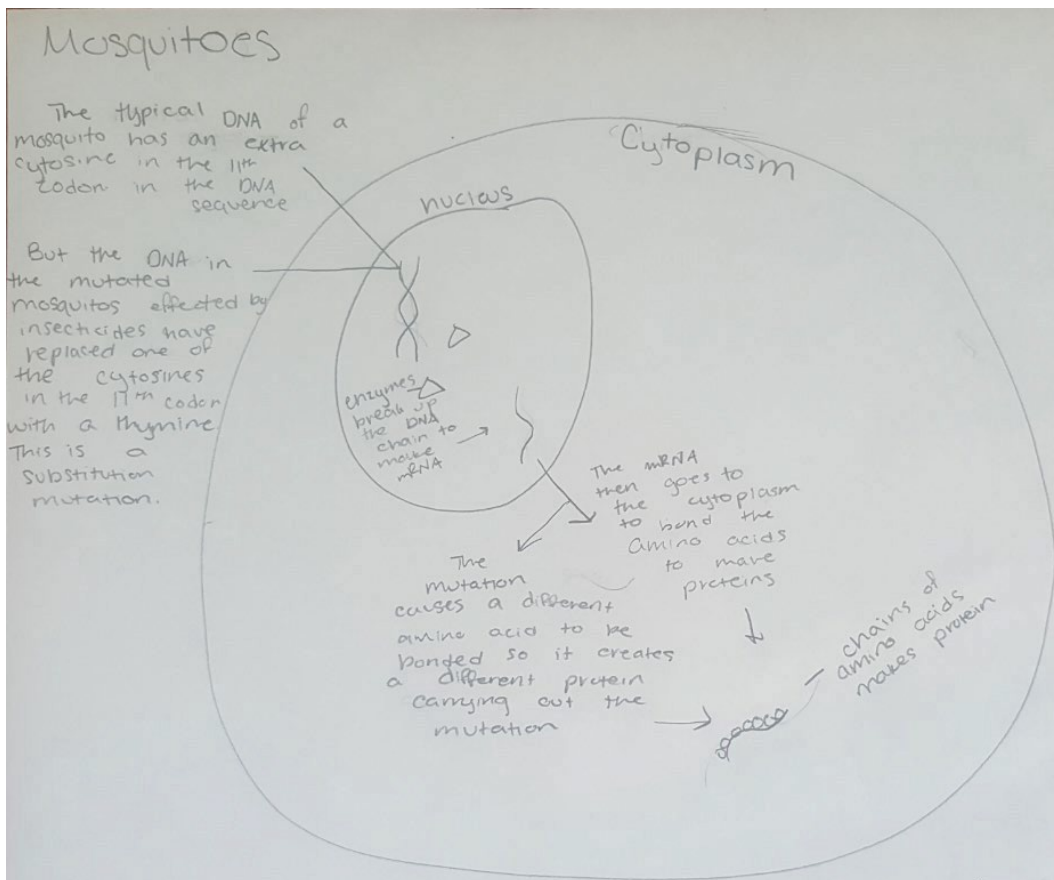 Mosquitoes
The typical DNA of a
mosquito has an extra
cytosine in the 11th
codon in the DNA
sequence
But the DNA in
the mutated
mosquitos effected by
insecticides have
replaced one of
the cytosines
in the 11th codon
with a thymine
This is a
substitution
mutation.
Cytoplasm
nucleus
enzymes
break up
the DNA
chain to
make
mRNA
The mRNA
then goes to
the cytoplasm
to bond the
amino acids
to make
proteins
The
mutation
causes a different
amino acid to be
bonded so it creates
a different protein
carrying out the
mutation
chains of
amino acids
makes protein